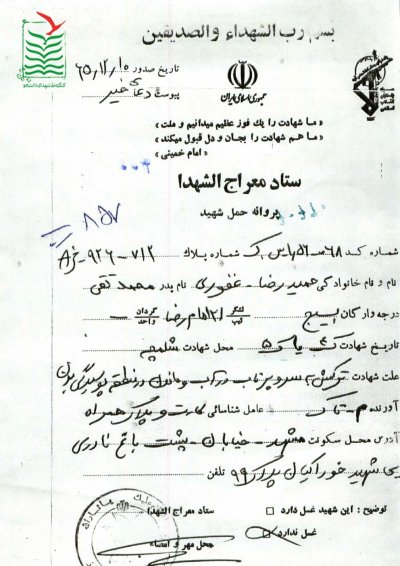 بسم رب الشهداء والصدیقین
تاریخ صدور ۶۵/۱۲/۱۰
پیوست دعای خیر
جمهوری اسلامی ایران
کنگره ملی شهدای دانشجو
«ما شهادت را یك فوز عظیم میدانیم و ملت»
«ما هم شهادت را بجان و دل قبول میکند»
«امام خمینی»
ستاد معراج الشهدا
پروانه حمل شهید
شماره کد ۶۸ شماره پلاك ۷۱۲-۹۲۶
نام و نام خانوادگی حمید رضا - غفوری نام پدر محمد تقی
درجه وارگان بسیج لشکر تیپ ۲۱ امام رضا گردان واحد -
تاریخ شهادت ک یک ۵ محل شهادت شلمچه
علت شهادت ترکش به سر و پرتاب در آب و ماندن در منطقه
آورنده عامل شناسائی کارت و پلاک همراه
آدرس محل سکونت مشهد - خیابان - پشت باغ نادری
شهید خوراکیان پلاک ۹۹ تلفن
توضیح : این شهید غسل دارد
غسل ندارد
ستاد معراج الشهدا
محل مهر و امضاء